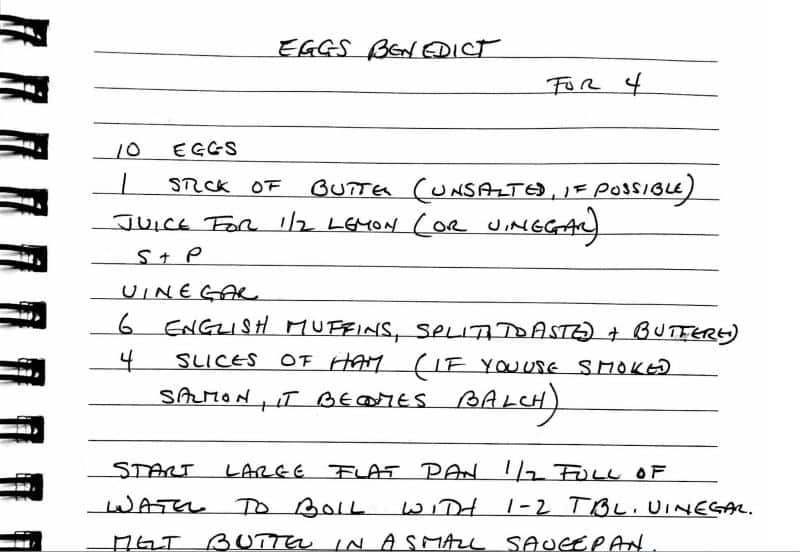 EGGS BENEDICT
FOR 4
10 EGGS
1 STICK OF BUTTER (UNSALTED, IF POSSIBLE)
JUICE FOR 1/2 LEMON (OR VINEGAR)
S + P
VINEGAR
6 ENGLISH MUFFINS, SPLIT, TOASTED + BUTTERED
4 SLICES OF HAM (IF YOU USE SMOKED
SALMON, IT BECOMES BALCH)
START LARGE FLAT PAN 1/2 FULL OF
WATER TO BOIL WITH 1-2 TBL. VINEGAR.
MELT BUTTER IN A SMALL SAUCEPAN.